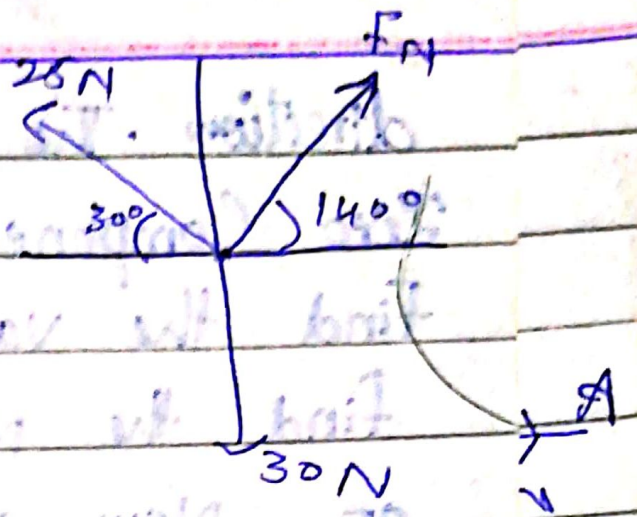 25N
F N
30°
140°
30N
A
v